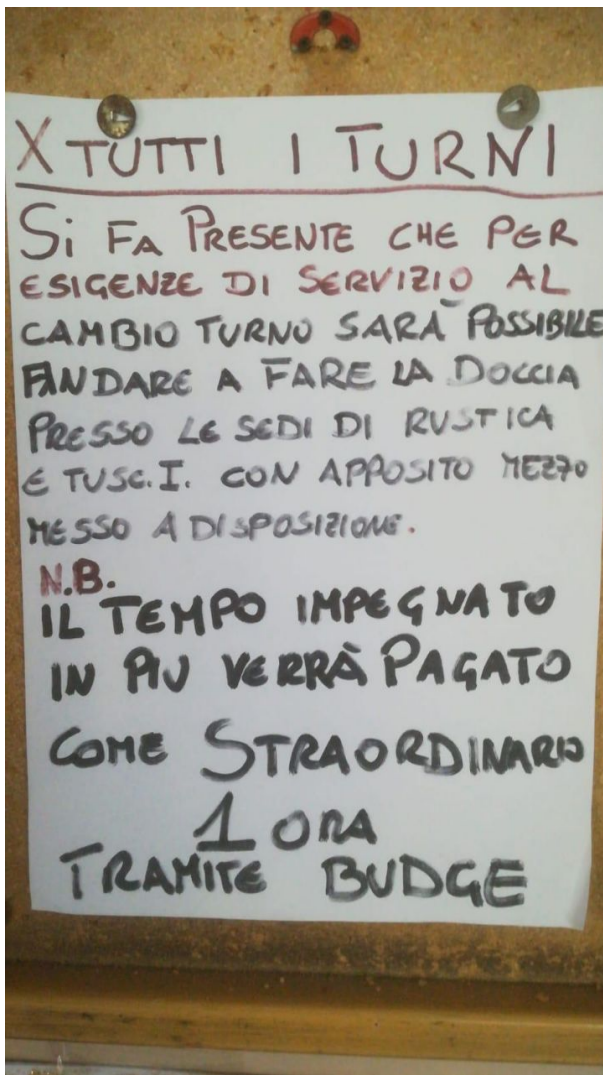 X TUTTI I TURNI
Si FA PRESENTE CHE PER
ESIGENZE DI SERVIZIO AL
CAMBIO TURNO SARÀ POSSIBILE
ANDARE A FARE LA DOCCIA
PRESSO LE SEDI DI RUSTICA
E TUSC.I. CON APPOSITO MEZZO
MESSO A DISPOSIZIONE.
N.B.
IL TEMPO IMPEGNATO
IN PIU VERRÀ PAGATO
COME STRAORDINARIO
1 ORA
TRAMITE BUDGE